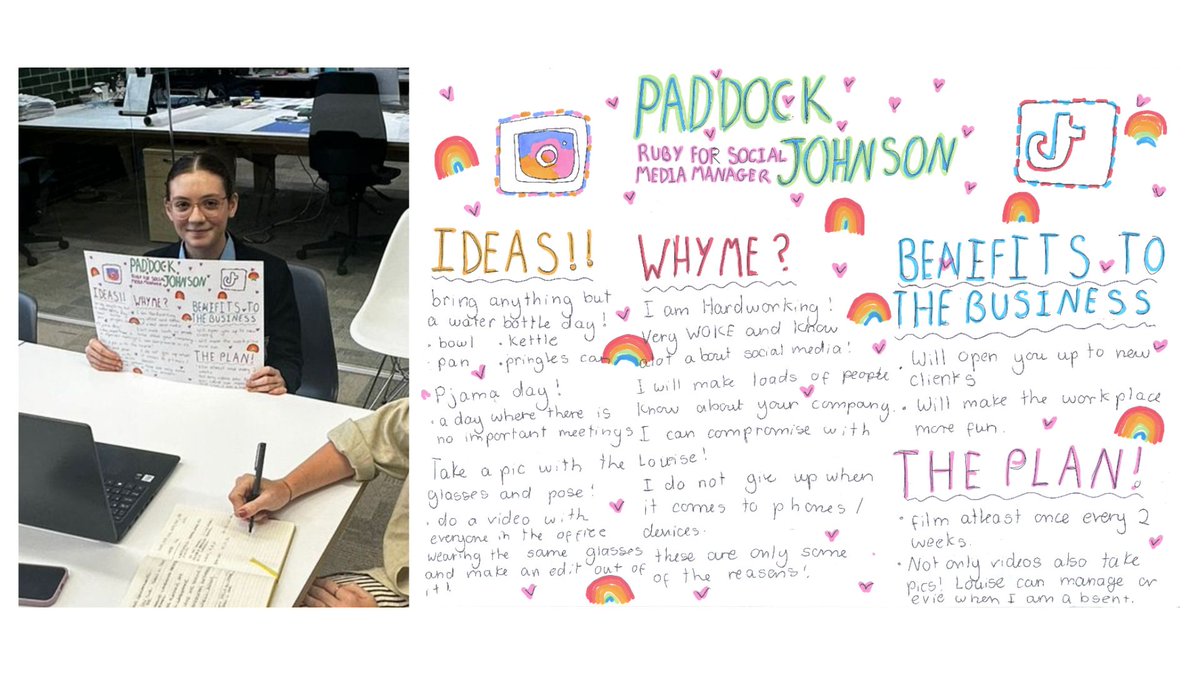 PADDOCK
JOHNSON
RUBY FOR SOCIAL
MEDIA MANAGER
IDEAS!!
bring anything but
a water bottle day!
· bowl · kettle
· pan · pringles can
Pjama day!
· a day where there is
no important meetings
Take a pic with the
glasses and pose!
· do a video with
everyone in the office
wearing the same glasses
and make an edit out of
it!
WHY ME?
I am Hardworking!
Very WOKE and know
alot about social media!
I will make loads of people
know about your company.
I can compromise with
Louise!
I do not give up when
it comes to phones/
devices.
these are only some
of the reasons!
BENIFITS TO
THE BUSINESS
· Will open you up to new
clients
· Will make the workplace
more fun.
THE PLAN!
· film atleast once every 2
weeks.
· Not only videos also take
pics! Louise can manage or
evie when I am absent.
PADDOCK
JOHNSON
RUBY FOR SOCIAL
MEDIA MANAGER
IDEAS!!
WHY ME?
BENIFITS TO
THE BUSINESS
THE PLAN!